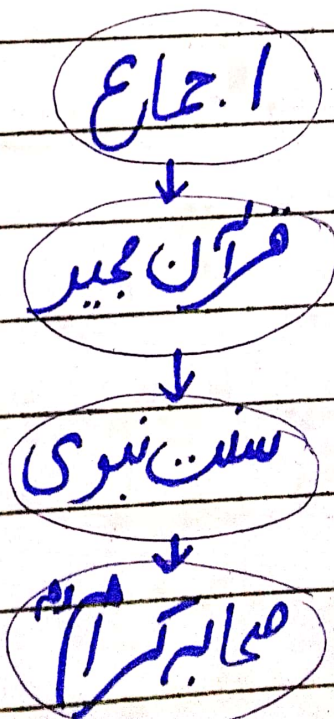 اجماع
قرآن مجید
سنت نبوی
صحابہ کرام